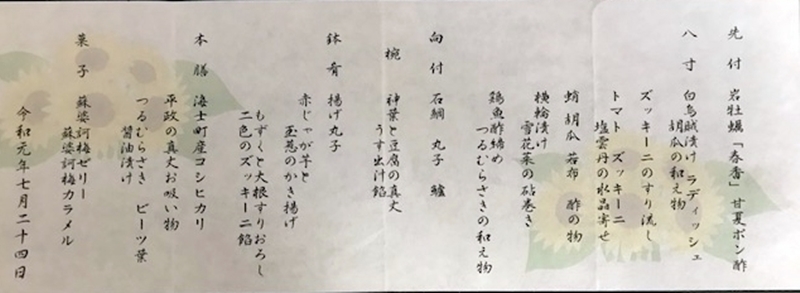 先付　岩牡蠣「春香」甘夏ポン酢
八寸　白烏賊漬け　ラディッシュ
胡瓜の和え物
ズッキーニのすり流し
トマト　ズッキーニ
塩雲丹の水晶寄せ
蛸　胡瓜　若布　酢の物
横輪漬け
雪花菜の砧巻き
鶏魚酢締め
つるむらさきの和え物
向付　石鯛　丸子　鱸
椀　神葉と豆腐の真丈
うす出汁餡
鉢肴　揚げ丸子
赤じゃが芋と
玉葱のかき揚げ
もずくと大根すりおろし
二色のズッキーニ餡
本膳　海士町産コシヒカリ
平政の真丈お吸い物
つるむらさき　ビーツ葉
醤油漬け
菓子　蘇婆訶梅ゼリー
蘇婆訶梅カラメル
令和元年七月二十四日